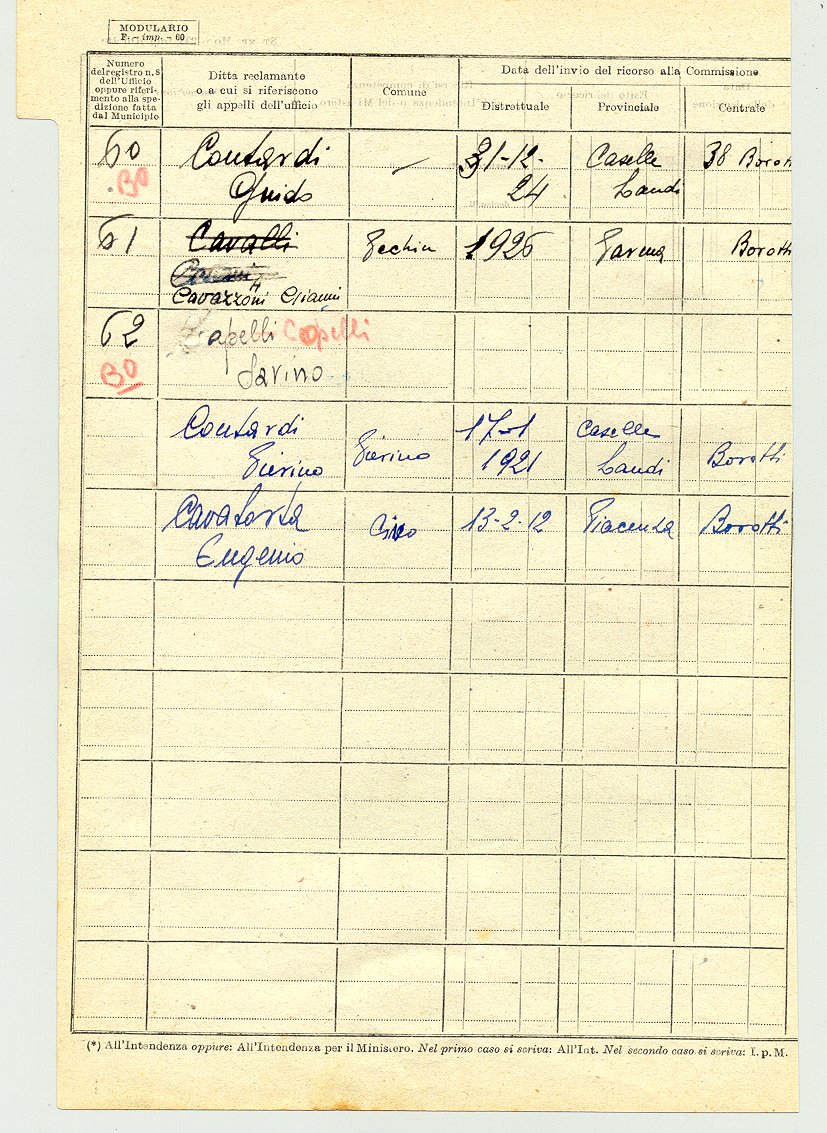 MODULARIO
F. - imp. - 60
Numero
del registro n. 8
dell'Ufficio
oppure riferi-
mento alla spe-
dizione fatta
dal Municipio
Ditta reclamante
o a cui si riferiscono
gli appelli dell'ufficio
Comune
Data dell'invio del ricorso alla Commissione
Distrettuale
Provinciale
Centrale
60 Contardi — 31-12- Caselle 38 Borotti
BO Guido 24 Landi
61 Cavalli 1925 Parma Borotti
Cavazzoni Gianni
62 Capelli Capelli
BO Savino
Contardi 17-1 Caselle
Pierino Pierino 1921 Landi Borotti
Cavatorta Ciro 13-2-12 Piacenza Borotti
Eugenio
(*) All'Intendenza oppure: All'Intendenza per il Ministero. Nel primo caso si scriva: All'Int. Nel secondo caso si scriva: I. p. M.